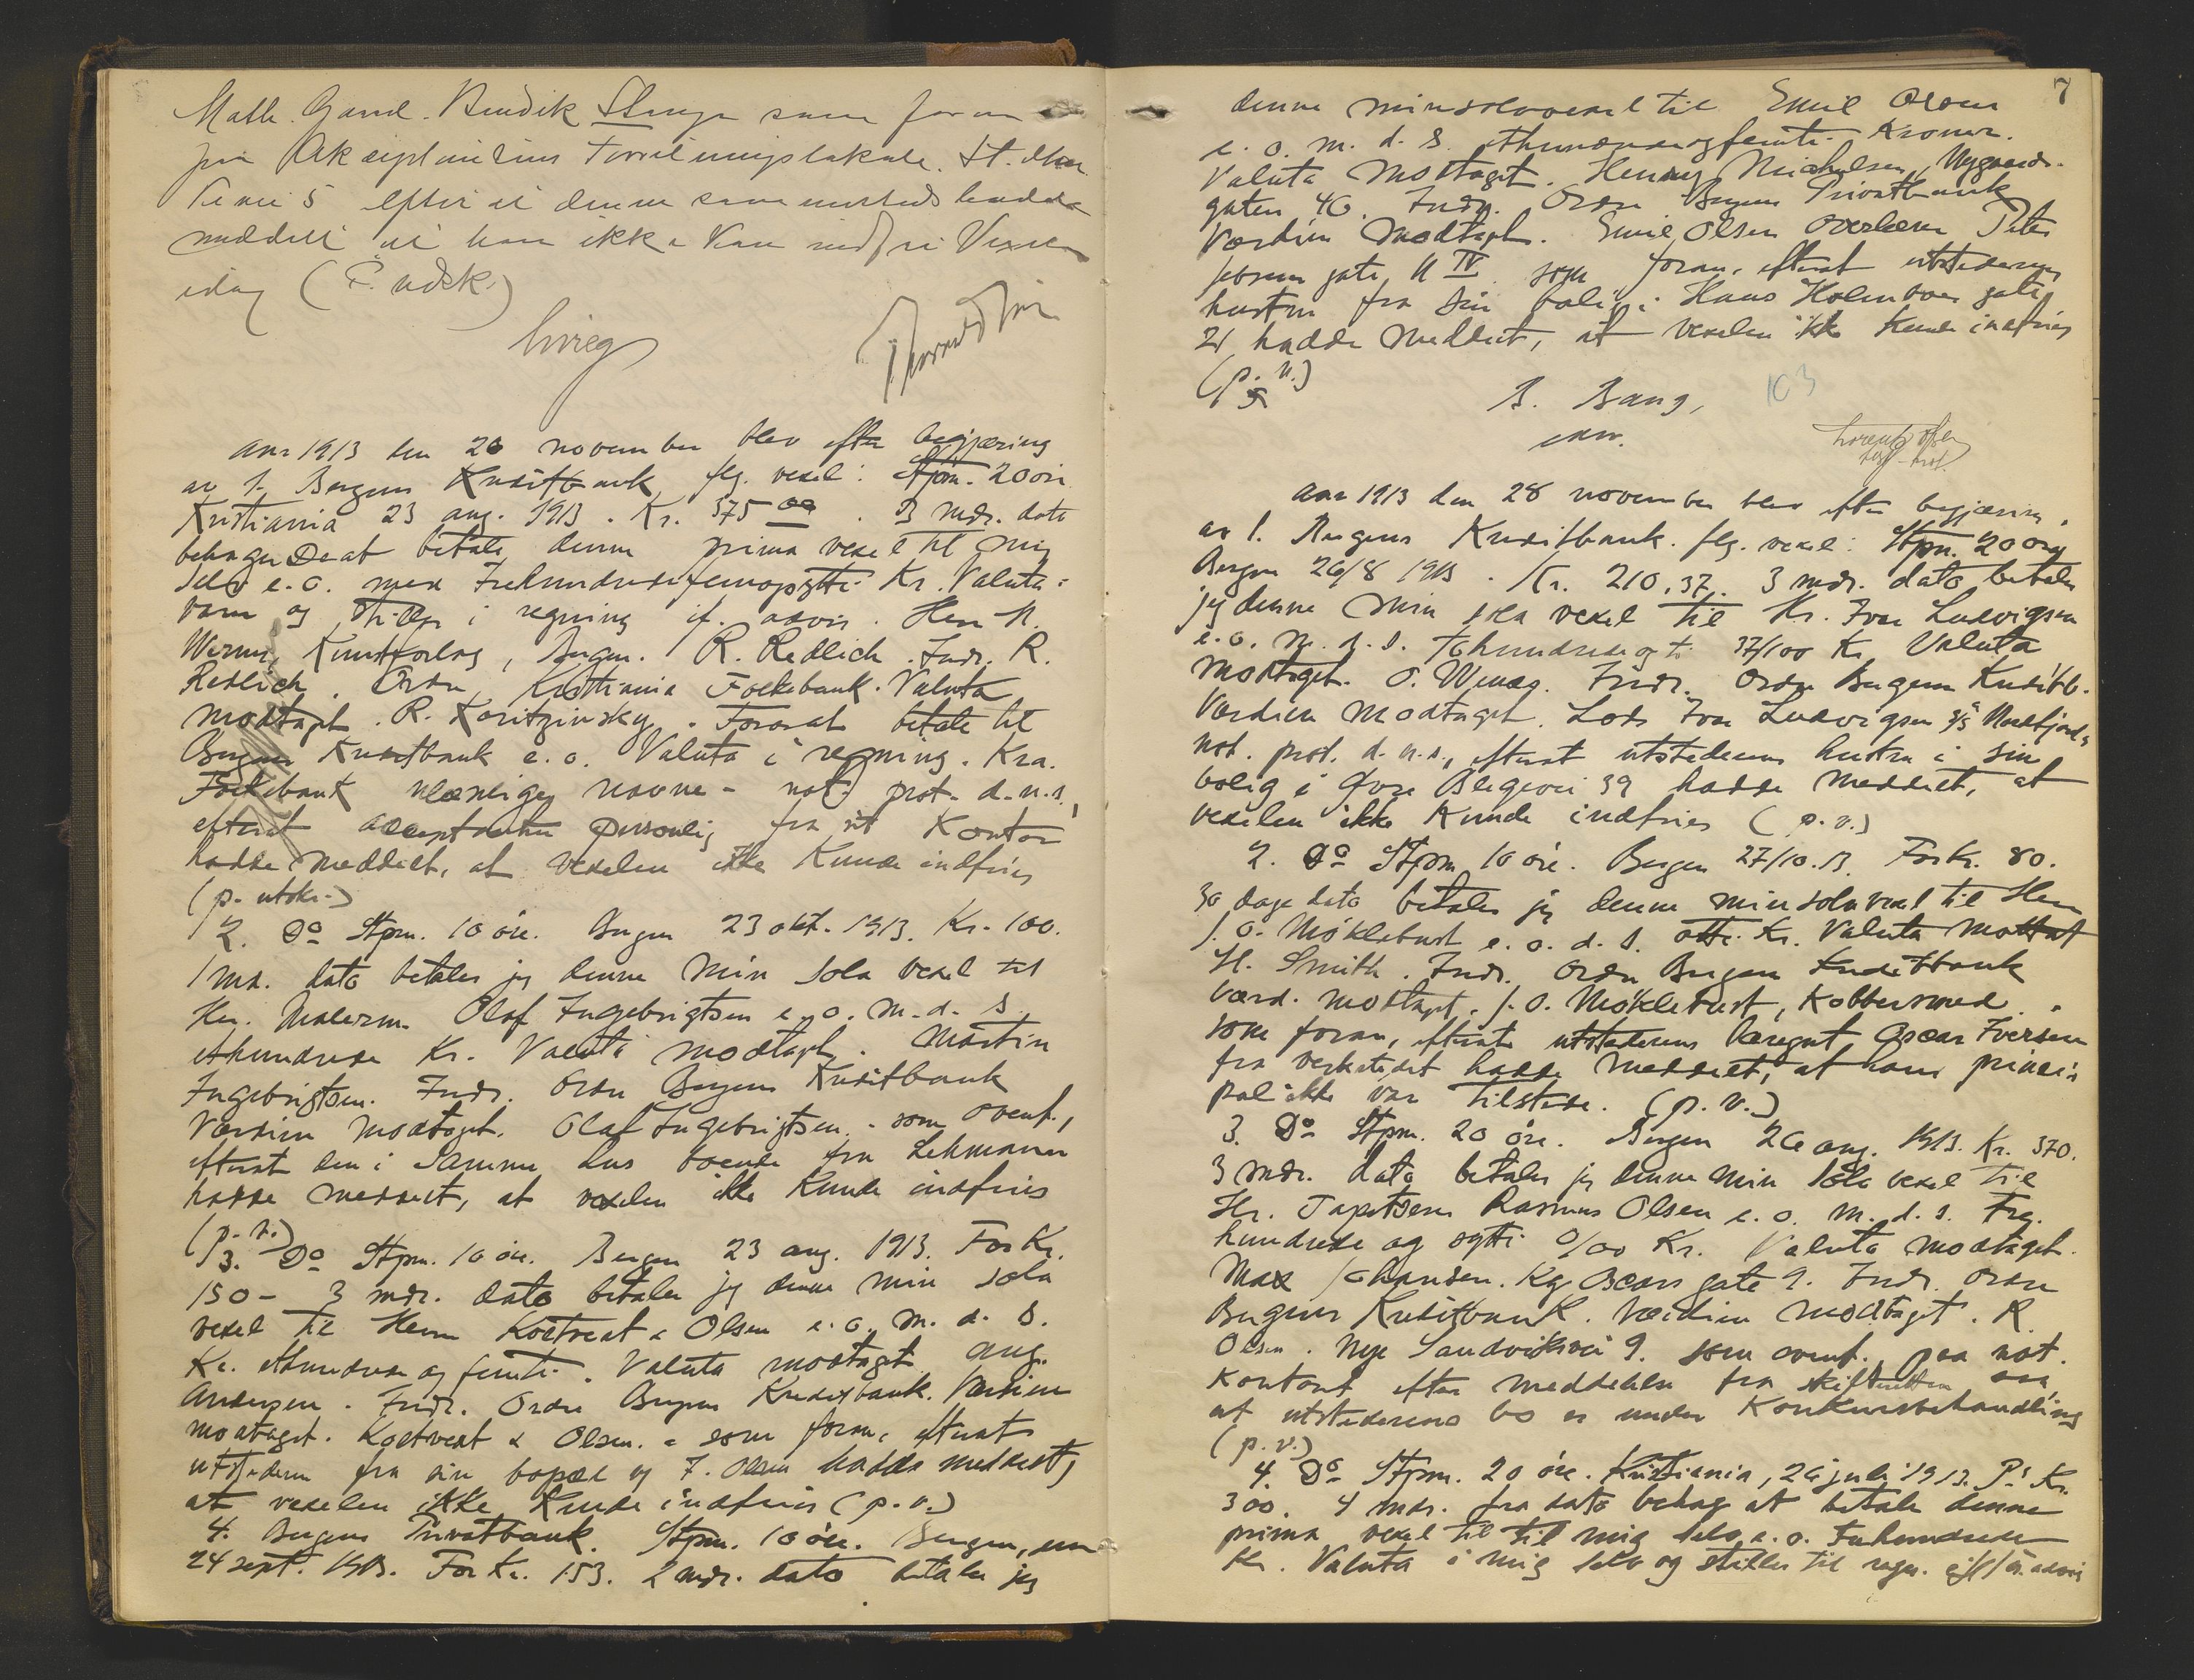 Math. Gand. Bendik som foran
paa Akceptantens Forretningslokale. St.
Vei 5 efter at denne sammesteds hadde
meddelt at han ikke kan indfri Vexelen
idag (P. udsk.)
7
Aar 1913 den 26 november blev efter begjæring
av 1. Bergens Kreditbank flg. vexel: Stpm. 20 øre
Kristiania 23 aug. 1913. Kr. 375 00. 3 mdr. dato
behager De at betale denne prima vexel til mig
selv e. o. med Trehundredefemogsytti Kr. Valuta i
varer og stilles i regning if. advis. Herr N.
Werner, Kunstforlag, Bergen. R. Redlich. Indr. R.
Redlich. Ordre Kristiania Folkebank. Valuta
modtaget. R. Koritzinsky. Foranst. betale til
Bergens Kreditbank e. o. Valuta i regning. Kra.
Folkebank ulæselige navne - not. prot. d. n. s.,
efterat acceptanten personlig fra sit kontor
hadde meddelt, at vexelen ikke kunde indfries
(p. utskr.)
2. Do Stpm. 10 øre. Bergen 23 okt. 1913. Kr. 100.
1 md. dato betaler jeg denne min sola vexel til
Hr. Malerm. Olaf Ingebrigtsen e. o. m. d. S.
ethundrede Kr. Valuta modtaget. Martin
Ingebrigtsen. Indr. Ordre Bergens Kreditbank
Værdien modtaget. Olaf Ingebrigtsen. - som ovenf.,
efterat den i samme hus boende fru Lehmann
hadde meddelt, at vexelen ikke kunde indfries
(p. v.)
3. Do Stpm. 10 øre. Bergen 23 aug. 1913. For Kr.
150 - 3 mdr. dato betaler jeg denne min sola
vexel til Herrn Koltveit & Olsen e. o. m. d. S.
Kr. ethundrede og femti. Valuta modtaget. Aug.
Andersen. Indr. Ordre Bergens Kreditbank. Værdien
modtaget. Koltveit & Olsen. - som foran, efterat
utstederen fra sin bopæl og F. Olsen hadde meddelt,
at vexelen ikke kunde indfries (p. v.)
4. Bergens Privatbank. Stpm. 10 øre. Bergen, den
24 sept. 1913. For Kr. 153. 2 mdr. dato betaler jeg
denne min solavexel til Emil Olsen
e. o. m. d. S. ethundredeogfemti Kroner.
Valuta modtaget. Henry Michelsen, Nygaards-
gaten 40. Indr. Ordre Bergens Privatbank
Værdien modtaget. Emil Olsen overlærer Peter
Jebsens gate 11 IV som foran, efterat utstederens
hustru fra sin bolig i Hans Holmboes gate
21 hadde meddelt, at vexelen ikke kunde indfries
(p. v.)
B. Bang,
103
Aar 1913 den 28 november blev efter begjæring
av 1. Bergens Kreditbank. flg. vexel: Stpm. 20 øre
Bergen 26/8 1913. Kr. 210,37. 3 mdr. dato betaler
jeg denne min sola vexel til Hr. Ivar Ludvigsen
e. o. m. d. S. Tohundredeogti 37/100 Kr. Valuta
modtaget. O. Wenaas. Indr. Ordre Bergens Kreditb.
Værdien modtaget. Lods Ivar Ludvigsen Nordfjord
not. prot. d. n. s., efterat utstederens hustru i sin
bolig i Øvre Blegevei 39 hadde meddelt, at
vexelen ikke kunde indfries (p. v.)
2. Do Stpm. 10 øre. Bergen 27/10.13. For Kr. 80.
30 dage dato betaler jeg denne min solavexel til Herr
J. O. Møklebust e. o. d. S. otti Kr. Valuta mottat
H. Smith. Indr. Ordre Bergens Kreditbank
Værd. modtaget. J. O. Møklebust, Kobbersmed.
som foran, efterat utstederens læregut Oscar Iversen
fra verkstedet hadde meddelt, at hans princi-
pal ikke var tilstede. (p. v.)
3. Do Stpm. 20 øre. Bergen 26 aug. 1913. Kr. 370.
3 mdr. dato betaler jeg denne min sola vexel til
Hr. Tapetserer Rasmus Olsen e. o. m. d. S. Tre
hundrede og sytti 0/00 Kr. Valuta modtaget.
Max Johansen. Kg. Oscars gate 9. Indr. Ordre
Bergens Kreditbank. Værdien modtaget. R.
Olsen. Nye Sandviksvei 9. som ovenf., paa not.
kontoret efter meddelelse fra skifteretten om
at utstederens bo er under Konkursbehandling
(p. v.)
4. Do Stpm. 20 øre. Kristiania, 26 juli 1913. Kr.
300. 4 mdr. fra dato behag at betale denne
prima vexel til til mig selv e. o. Trehundrede
Kr. Valuta i mig selv og stilles til regn. advis